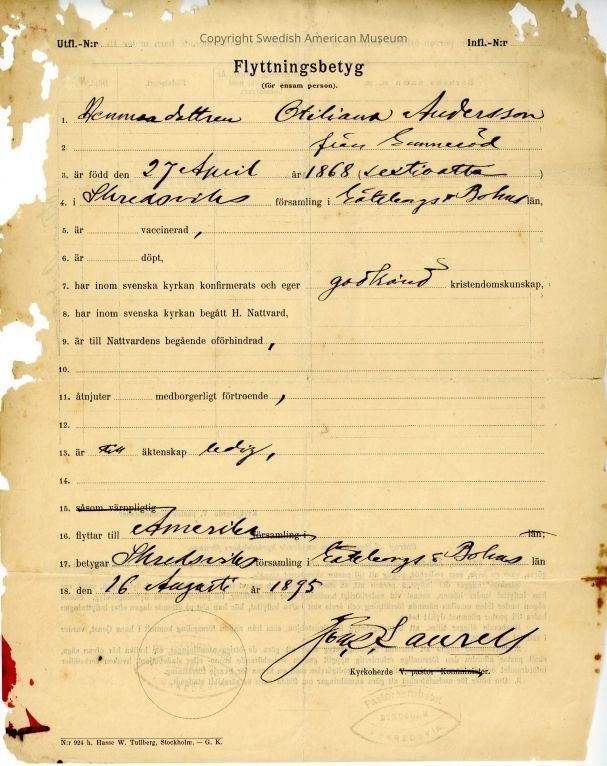 Copyright Swedish American Museum
Utfl.-N:r Infl.-N:r
Flyttningsbetyg
(för ensam person).
1. Hemmadottren Otiliana Andersson
2. från Gunnesöd
3. är född den 27 April år 1868 (sextioåtta)
4. i Skredsviks församling i Göteborgs & Bohus län,
5. är vaccinerad,
6. är döpt,
7. har inom svenska kyrkan konfirmerats och eger godkänd kristendomskunskap,
8. har inom svenska kyrkan begått H. Nattvard,
9. är till Nattvardens begående oförhindrad,
10.
11. åtnjuter medborgerligt förtroende,
12.
13. är till äktenskap ledig,
14.
15. såsom värnpligtig
16. flyttar till Amerika församling i län;
17. betygar Skredsviks församling i Göteborgs & Bohus län
18. den 16 Augusti år 1895
Laurell
Kyrkoherde V. pastor Komminister.
Pastorsembetet
SKREDSVIK
N:r 924 h. Hasse W. Tullberg, Stockholm. — G. K.